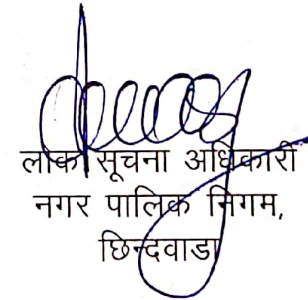 लोक सूचना अधिकारी
नगर पालिक निगम,
छिन्दवाडा